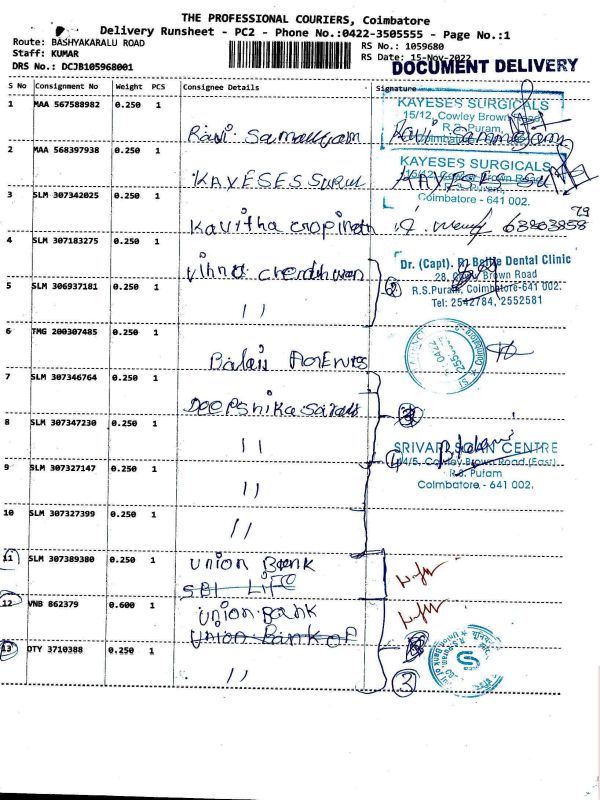 THE PROFESSIONAL COURIERS, Coimbatore
Delivery Runsheet - PC2 - Phone No.:0422-3505555 - Page No.:1
Route: BASHYAKARALU ROAD
RS No.: 1059680
Staff: KUMAR
RS Date: 15-Nov-2022
DRS No.: DCJB105968001
DOCUMENT DELIVERY
S No Consignment No Weight PCS Consignee Details Signature
1 MAA 567588982 0.250 1
KAYESES SURGICALS
15/12, Cowley Brown Road
R.S. Puram,
2 MAA 568397938 0.250 1
KAYESES SURGICALS
KAYESES
R.S. Puram,
Coimbatore - 641 002.
3 SLM 307342025 0.250 1
Kavitha Gopinath
4 SLM 307183275 0.250 1
Dr. (Capt). Dental Clinic
28, Brown Road
R.S.Puram, Coimbatore-641 002.
Tel: 2542784, 2552581
5 SLM 306937181 0.250 1
11
2
6 TMG 200307485 0.250 1
Balaji
7 SLM 307346764 0.250 1
Deepshika
8 SLM 307347230 0.250 1
11
SRIVARI SCAN CENTRE
Cowley Brown Road (East)
R.S. Puram
Coimbatore - 641 002.
4
9 SLM 307327147 0.250 1
11
10 SLM 307327399 0.250 1
11
11 SLM 307389380 0.250 1
Union Bank
SBI LIFE
12 VNB 862379 0.600 1
Union Bank
Union Bank of
13 OTY 3710388 0.250 1
11
3